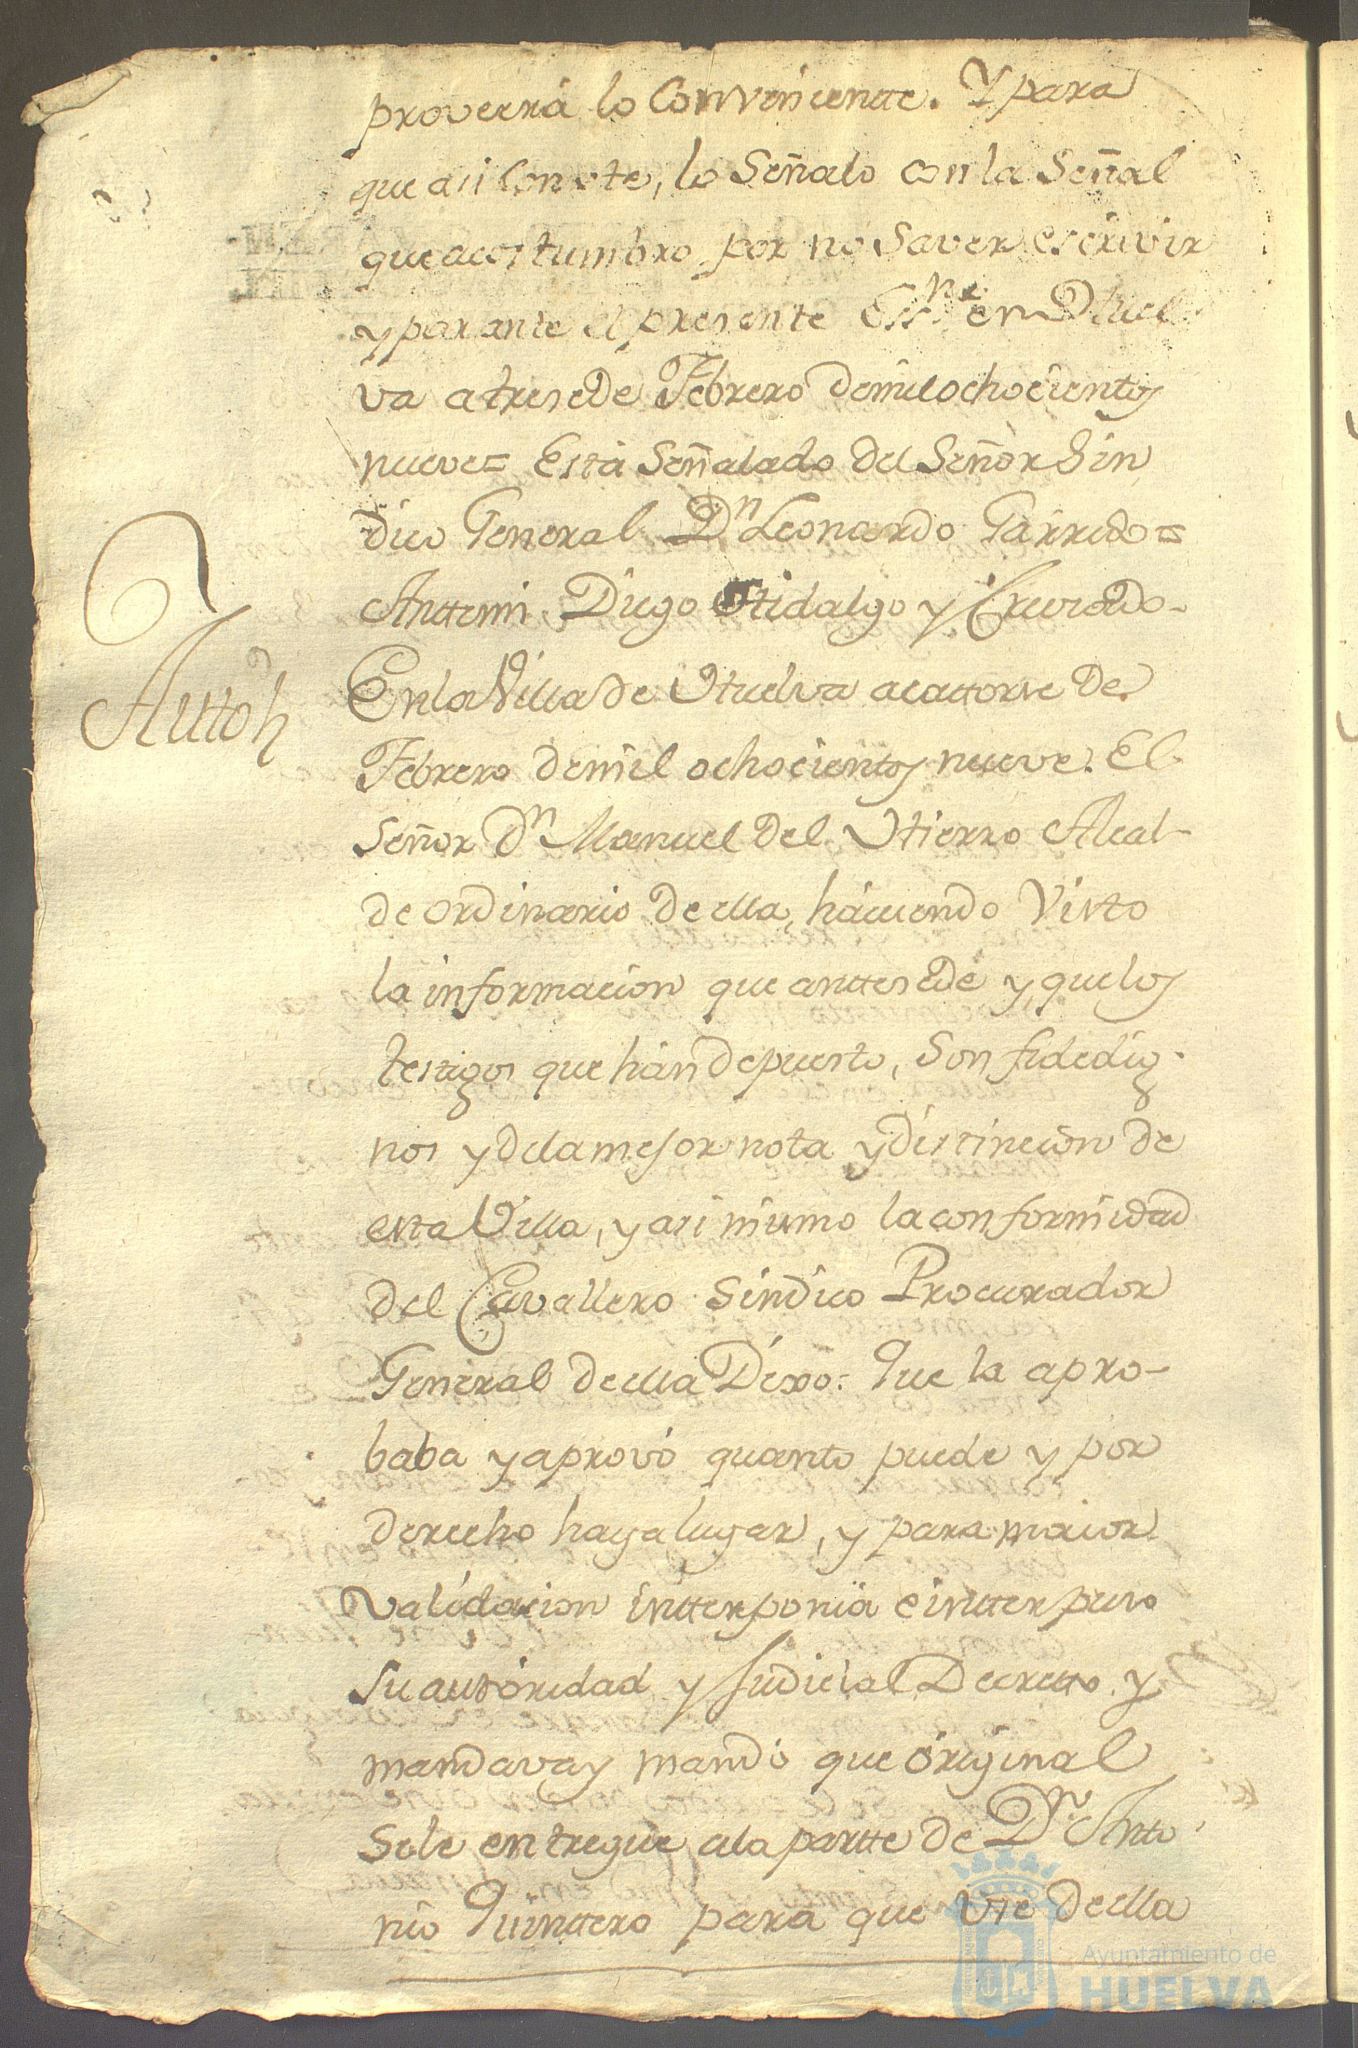 proveerá lo Conveniente. Y para
que asi Conste, lo Señalo con la Señal
que acostumbro por no Saver escrivir
y por ante el presente Essno. en Huel
va a trese de Febrero de mil ochocientos
nueve = Está Señalado del Señor Sin
dico General Dn Leonardo Garrido =
Anttemi Diego Hidalgo y
Auto
En la Villa de Huelva a cattorse de
Febrero de mil ochocientos nueve. El
Señor Dn Manuel del Hierro Alcal-
de ordinario de ella, haviendo Visto
la informacion que anttesede y que los
testigos que hán depuesto, Son fidedig
nos y de la mejor nota y distincion de
esta Villa, y asi mismo la conformidad
del Cavallero Sindico Procurador
General de ella Dixo: Que la apro-
baba y aprovó quanto puede y por
derecho haya lugar, y para maior
validacion intterponia e intterpuso
Su autoridad y Judicial Decretto y
mandava y mandó que original
Se le entregue a la partte de Dn Anto
nio Quinttero para que Vse de ella
Ayuntamiento de
HUELVA